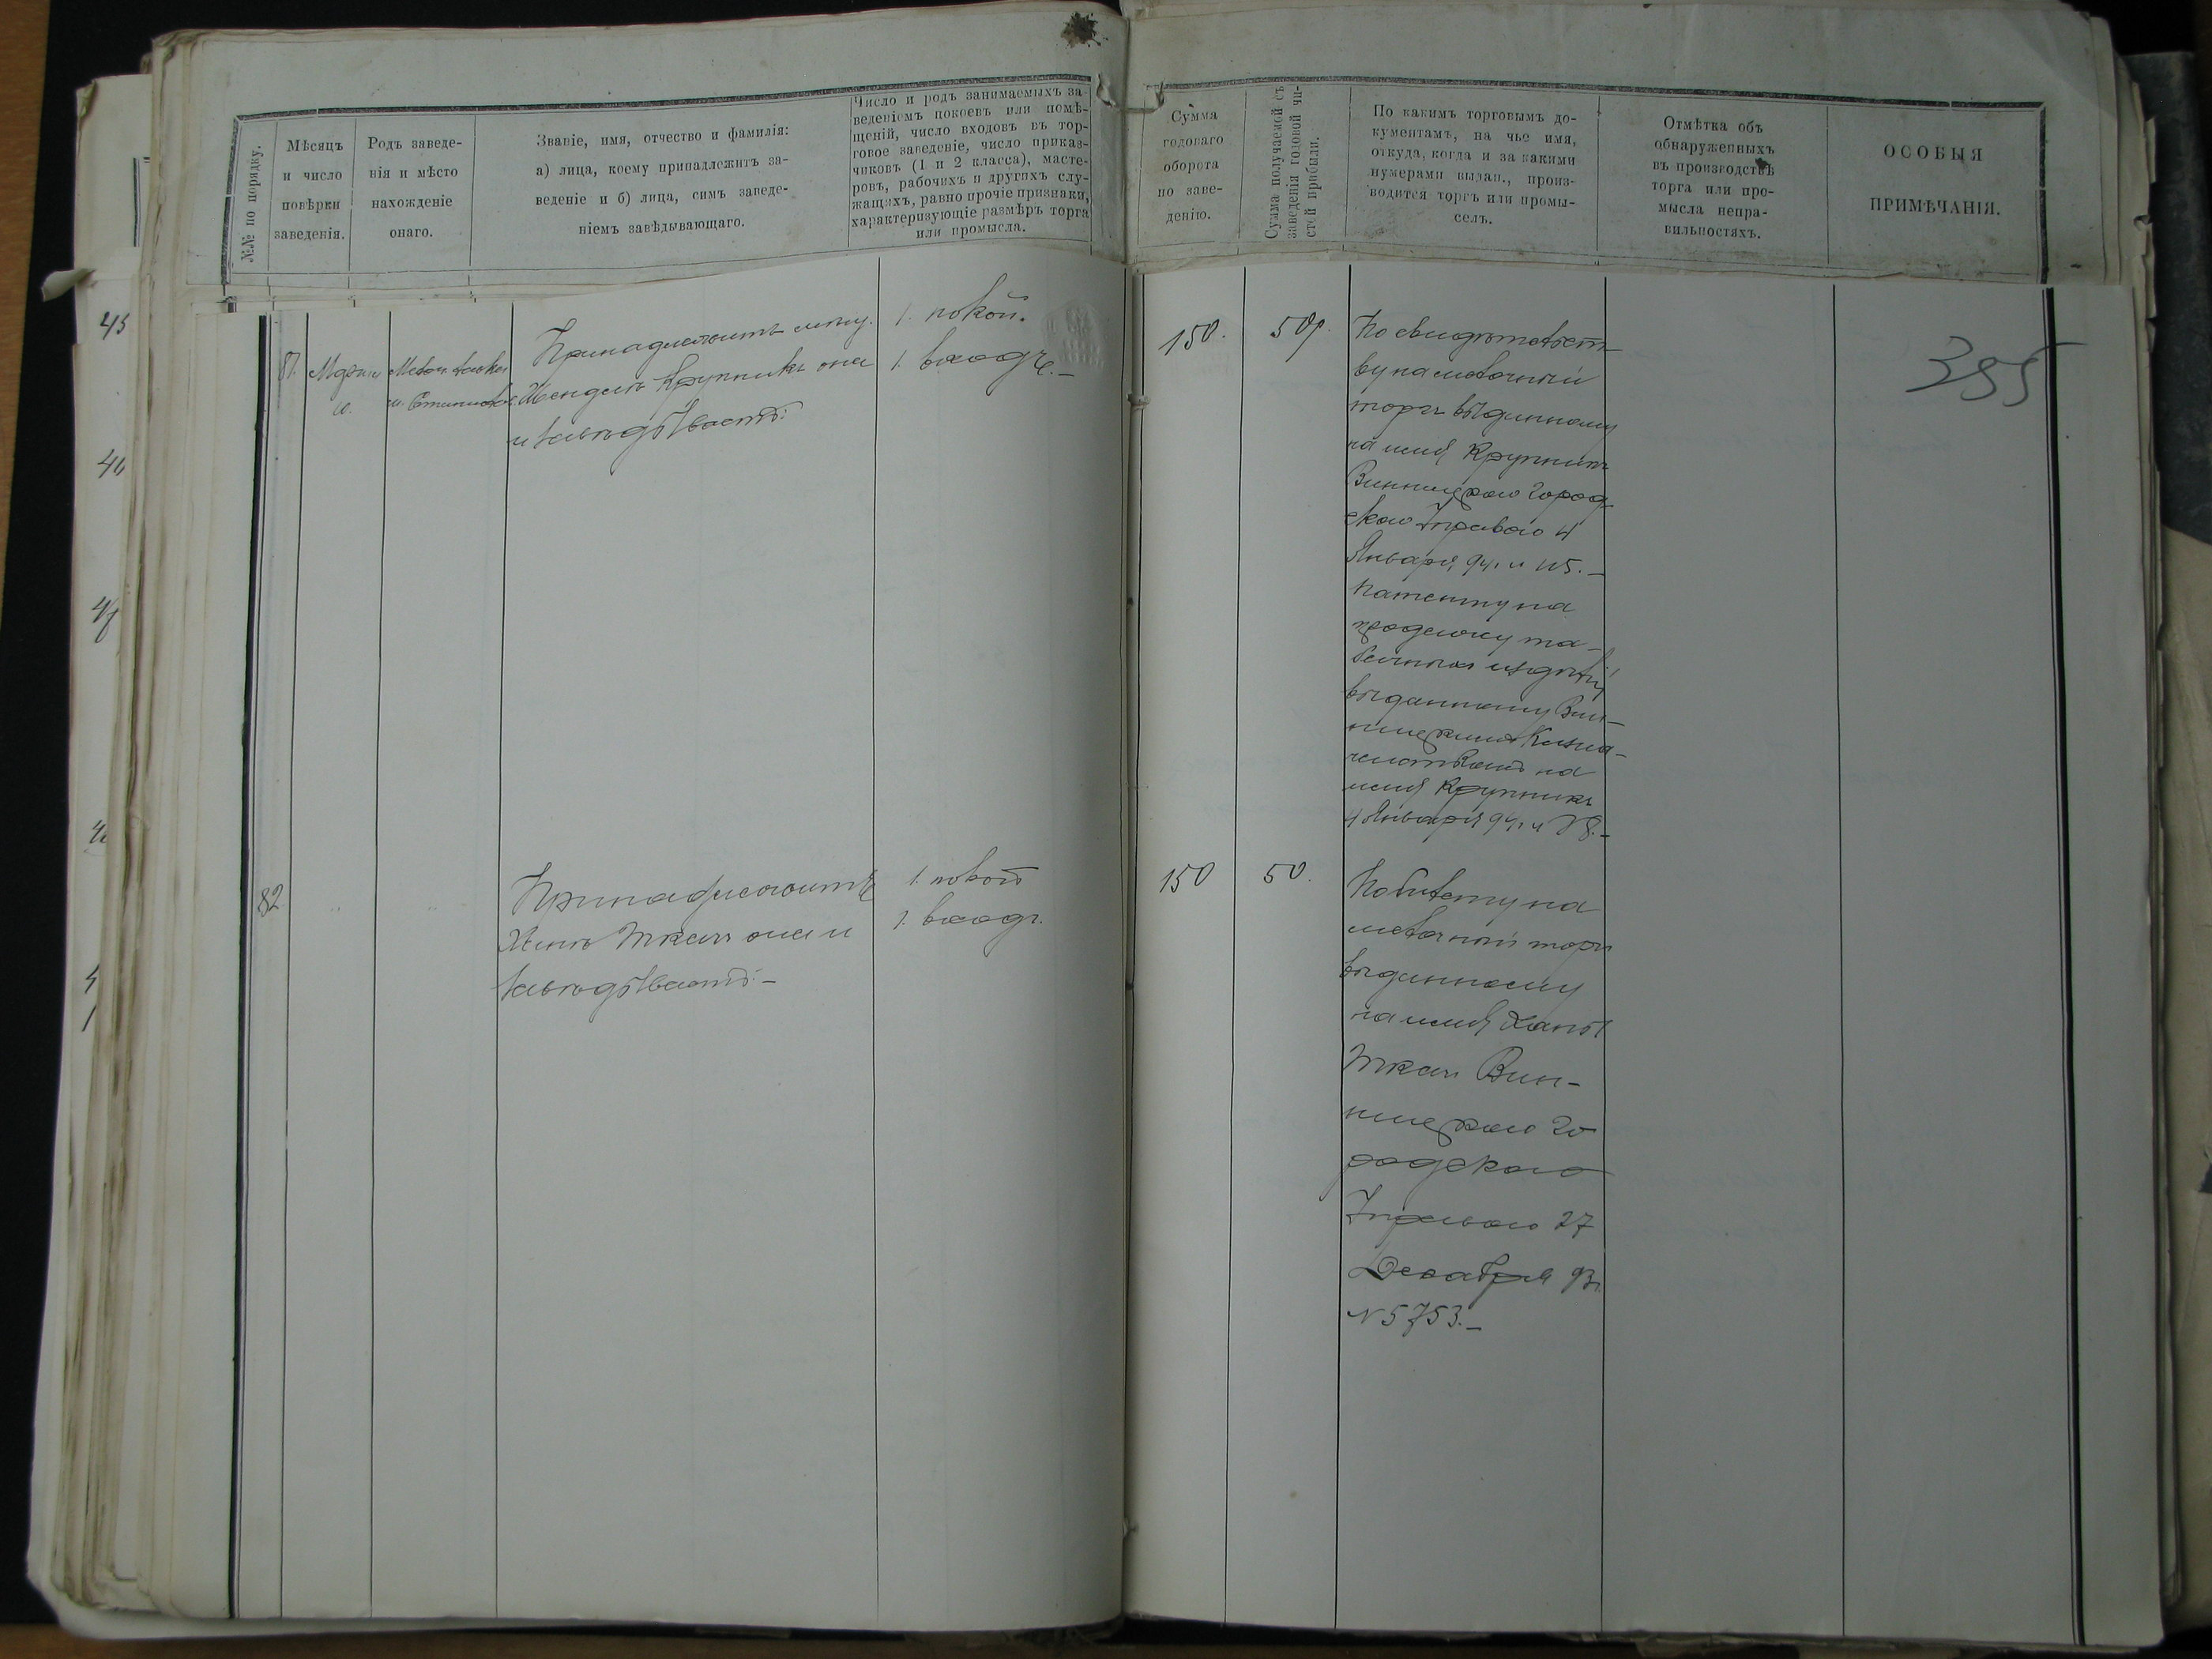 №№ по порядку.
Мѣсяцъ
и число
повѣрки
заведенія.
Родъ заведе-
нія и мѣсто
нахожденіе
онаго.
Званіе, имя, отчество и фамилія:
а) лица, коему принадлежитъ за-
веденіе и б) лица, симъ заведе-
ніемъ завѣдывающаго.
Число и родъ занимаемыхъ за-
веденіемъ покоевъ или помѣ-
щеній, число входовъ въ тор-
говое заведеніе, число приказ-
чиковъ (1 и 2 класса), масте-
ровъ, рабочихъ и другихъ слу-
жащихъ, равно прочіе признаки,
характеризующіе размѣръ торга
или промысла.
Сумма
годоваго
оборота
по заве-
денію.
Сумма получаемой съ
заведенія годовой чи-
стой прибыли.
По какимъ торговымъ до-
кументамъ, на чье имя,
откуда, когда и за какими
нумерами выдан., произ-
водится торгъ или промы-
селъ.
Отмѣтка объ
обнаруженныхъ
въ производствѣ
торга или про-
мысла непра-
вильностяхъ.
ОСОБЫЯ
ПРИМѢЧАНІЯ.
45
46
47
81.
Мелоч. лавка
Принадлежитъ
Крупникъ она
и завѣдываетъ.
1. покой.
1. входъ.-
150.
50р.
По свидѣтельст-
ву на мелочный
торгъ выданному
на имя Крупникъ
Винницкою Город-
скою Управою 4
Января 94 г. N 115.-
Патенту на
продажу та-
бачныхъ издѣлій
выданному Вин-
ницкимъ Казна-
чействомъ на
имя Крупникъ
4 Января 94 г. N 78.-
355
82
Принадлежитъ
Ткачъ она и
завѣдываетъ.-
1. покой
1. входъ.
150
50.
По билету на
мелочный торгъ
выданному
на имя Ханы
Ткачъ Вин-
ницкою Го
родскою
Управою 27
Декабря 93 г.
N 5753.-